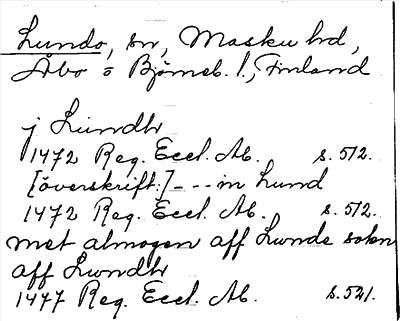 Lundo, sn, Masku hd,
Åbo o Björneb. l., Finland
j Lundhr
1472 Reg. Eccl. Ab. s. 512.
[överskrift:] - - - in Lund
1472 Reg. Eccl. Ab. s. 512.
met almogen aff Lunde sokn
aff Lundhr
1477 Reg. Eccl. Ab. s. 521.